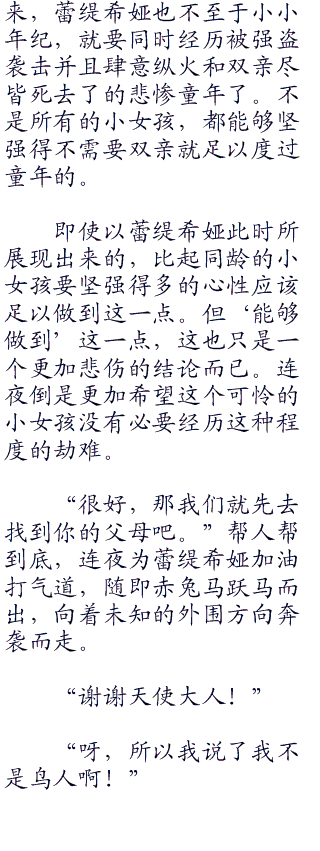 来，蕾缇希娅也不至于小小
年纪，就要同时经历被强盗
袭击并且肆意纵火和双亲尽
皆死去了的悲惨童年了。不
是所有的小女孩，都能够坚
强得不需要双亲就足以度过
童年的。
即使以蕾缇希娅此时所
展现出来的，比起同龄的小
女孩要坚强得多的心性应该
足以做到这一点。但‘能够
做到’这一点，这也只是一
个更加悲伤的结论而已。连
夜倒是更加希望这个可怜的
小女孩没有必要经历这种程
度的劫难。
“很好，那我们就先去
找到你的父母吧。”帮人帮
到底，连夜为蕾缇希娅加油
打气道，随即赤兔马跃马而
出，向着未知的外围方向奔
袭而走。
“谢谢天使大人！”
“呀，所以我说了我不
是鸟人啊！”